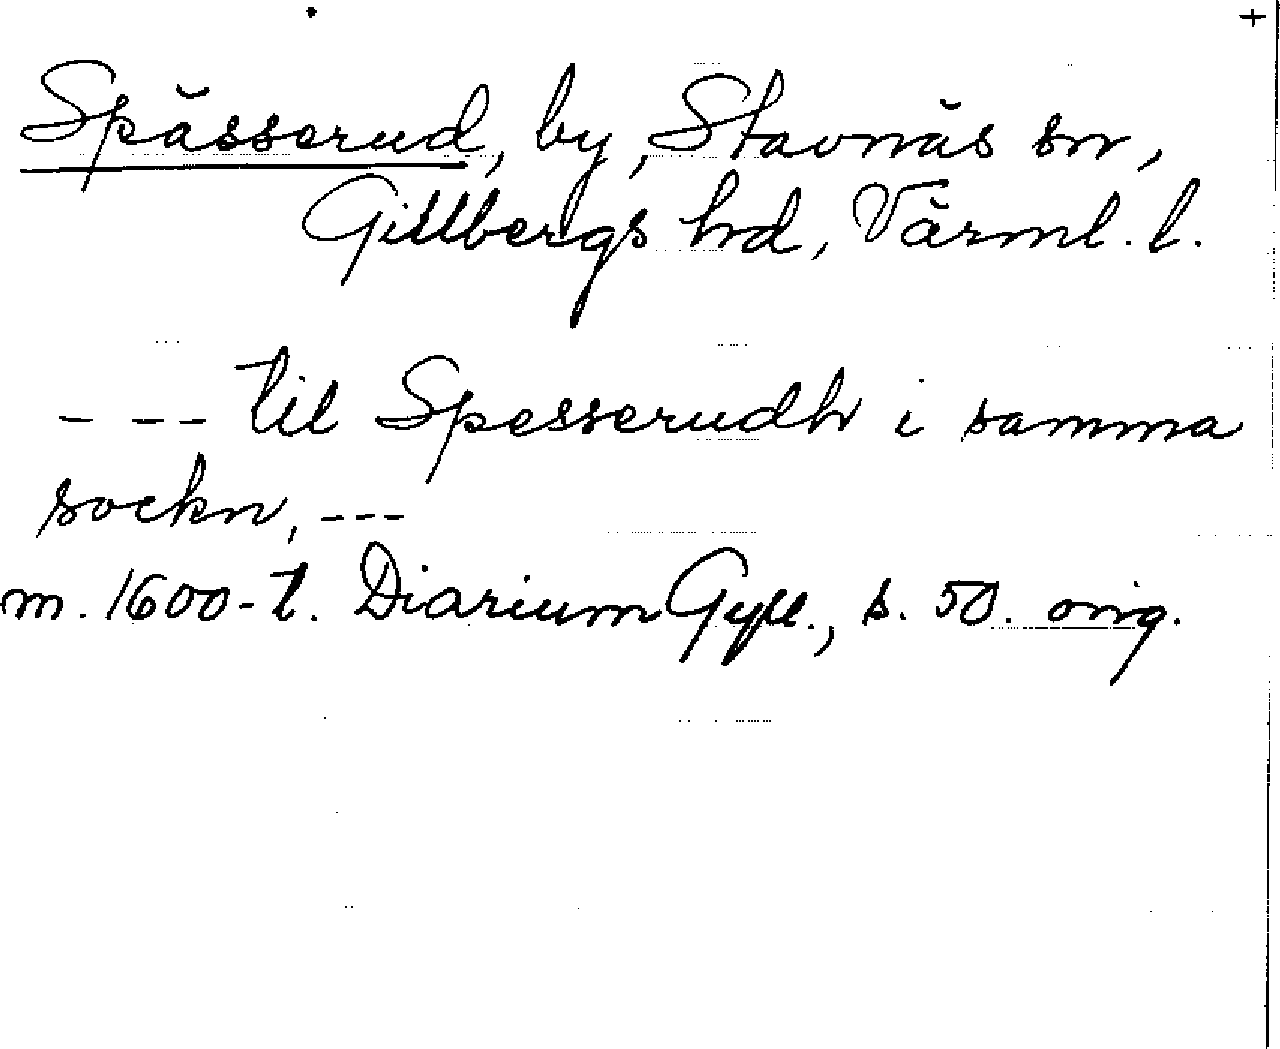 +
Spässerud, by, Stavnäs sn,
Gillbergs hd, Värml. l.
- - - til Spesserudh i samma
sockn, - - -
m. 1600-t. Diarium Gyll., s. 50. orig.